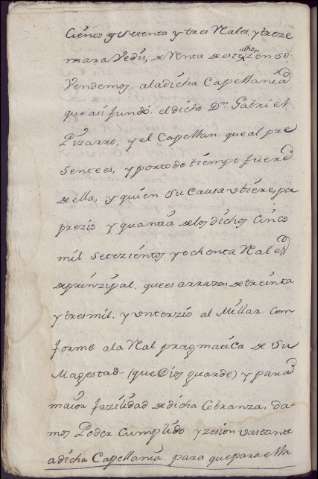 Ciento y Setenta y tres Reales, y treze
maravedis, de Renta de
Vendemos, a la dicha Capellania
que assi fundó, el dicho Dn. Gabriel
Pizarro, y el Capellan que al pre
sente es, y por todo tiempo fuere
de ella, y quien su Causa ubiere, por
prezio, y quantia de los dichos Cinco
mil Setezientos, y ochenta Reales
de prinzipal, que es a razon de treinta
y tres mil, y un terzio al Millar Con
forme a la Real pragmatica de Su
Magestad (que Dios guarde) y para
maior fazilidad de dicha Cobranza, da
mos Poder Cumplido y zesion
a dicha Capellania para que para ella